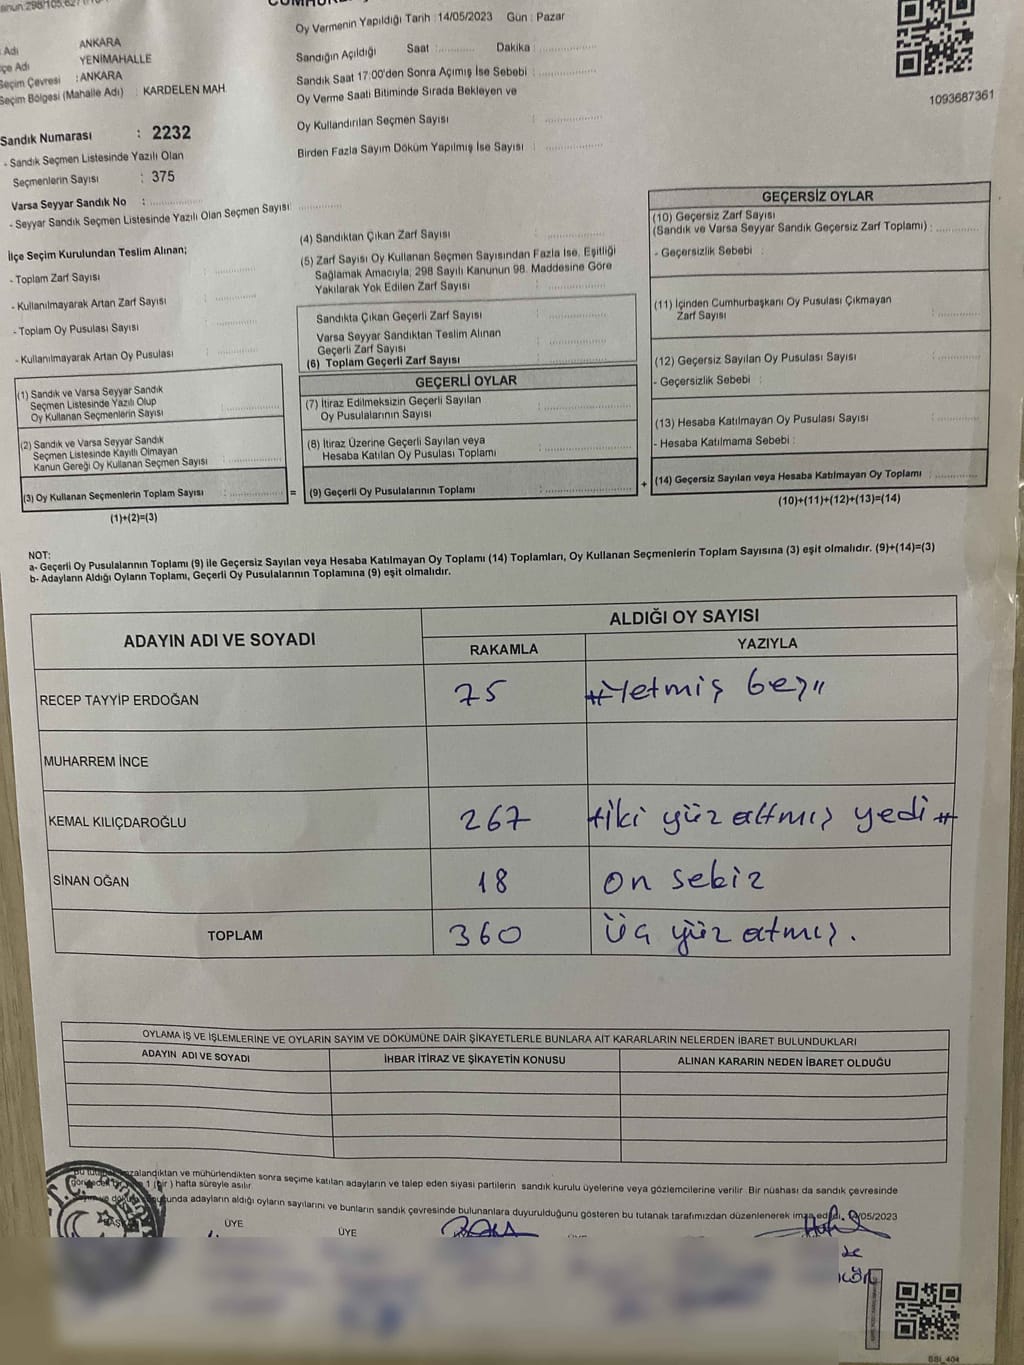 Oy Vermenin Yapıldığı Tarih : 14/05/2023 Gün : Pazar
Adı ANKARA
Adı YENİMAHALLE
Seçim Çevresi : ANKARA
Seçim Bölgesi (Mahalle Adı) : KARDELEN MAH.
Sandığın Açıldığı Saat :............ Dakika :................
Sandık Saat 17:00'den Sonra Açımış İse Sebebi :................
Oy Verme Saati Bitiminde Sırada Bekleyen ve
Oy Kullandırılan Seçmen Sayısı :................
Birden Fazla Sayım Döküm Yapılmış İse Sayısı :................
1093687361
Sandık Numarası : 2232
- Sandık Seçmen Listesinde Yazılı Olan
Seçmenlerin Sayısı : 375
Varsa Seyyar Sandık No :................
- Seyyar Sandık Seçmen Listesinde Yazılı Olan Seçmen Sayısı: ............
İlçe Seçim Kurulundan Teslim Alınan;
- Toplam Zarf Sayısı :............
- Kullanılmayarak Artan Zarf Sayısı :............
- Toplam Oy Pusulası Sayısı :............
- Kullanılmayarak Artan Oy Pusulası :............
(1) Sandık ve Varsa Seyyar Sandık
Seçmen Listesinde Yazılı Olup
Oy Kullanan Seçmenlerin Sayısı :................
(2) Sandık ve Varsa Seyyar Sandık
Seçmen Listesinde Kayıtlı Olmayan
Kanun Gereği Oy Kullanan Seçmen Sayısı :................
(3) Oy Kullanan Seçmenlerin Toplam Sayısı :................
(1)+(2)=(3)
=
(4) Sandıktan Çıkan Zarf Sayısı :................
(5) Zarf Sayısı Oy Kullanan Seçmen Sayısından Fazla İse, Eşitliği
Sağlamak Amacıyla; 298 Sayılı Kanunun 98. Maddesine Göre
Yakılarak Yok Edilen Zarf Sayısı :................
Sandıkta Çıkan Geçerli Zarf Sayısı :................
Varsa Seyyar Sandıktan Teslim Alınan
Geçerli Zarf Sayısı :................
(6) Toplam Geçerli Zarf Sayısı :................
GEÇERLİ OYLAR
(7) İtiraz Edilmeksizin Geçerli Sayılan
Oy Pusulalarının Sayısı :................
(8) İtiraz Üzerine Geçerli Sayılan veya
Hesaba Katılan Oy Pusulası Toplamı :................
(9) Geçerli Oy Pusulalarının Toplamı :................
+
GEÇERSİZ OYLAR
(10) Geçersiz Zarf Sayısı
(Sandık ve Varsa Seyyar Sandık Geçersiz Zarf Toplamı) : ............
- Geçersizlik Sebebi :
(11) İçinden Cumhurbaşkanı Oy Pusulası Çıkmayan
Zarf Sayısı :............
(12) Geçersiz Sayılan Oy Pusulası Sayısı :............
- Geçersizlik Sebebi :
(13) Hesaba Katılmayan Oy Pusulası Sayısı :............
- Hesaba Katılmama Sebebi :
(14) Geçersiz Sayılan veya Hesaba Katılmayan Oy Toplamı :............
(10)+(11)+(12)+(13)=(14)
NOT:
a- Geçerli Oy Pusulalarının Toplamı (9) ile Geçersiz Sayılan veya Hesaba Katılmayan Oy Toplamı (14) Toplamları, Oy Kullanan Seçmenlerin Toplam Sayısına (3) eşit olmalıdır. (9)+(14)=(3)
b- Adayların Aldığı Oyların Toplamı, Geçerli Oy Pusulalarının Toplamına (9) eşit olmalıdır.
ADAYIN ADI VE SOYADI ALDIĞI OY SAYISI
RAKAMLA YAZIYLA
RECEP TAYYİP ERDOĞAN 75 #Yetmiş beş"
MUHARREM İNCE
KEMAL KILIÇDAROĞLU 267 #iki yüz altmış yedi#
SİNAN OĞAN 18 on sekiz
TOPLAM 360 üç yüz atmış.
OYLAMA İŞ VE İŞLEMLERİNE VE OYLARIN SAYIM VE DÖKÜMÜNE DAİR ŞİKAYETLERLE BUNLARA AİT KARARLARIN NELERDEN İBARET BULUNDUKLARI
ADAYIN ADI VE SOYADI İHBAR İTİRAZ VE ŞİKAYETİN KONUSU ALINAN KARARIN NEDEN İBARET OLDUĞU
imzalandıktan ve mühürlendikten sonra seçime katılan adayların ve talep eden siyasi partilerin sandık kurulu üyelerine veya gözlemcilerine verilir. Bir nüshası da sandık çevresinde
1 (bir) hafta süreyle asılır.
adayların aldığı oyların sayılarını ve bunların sandık çevresinde bulunanlara duyurulduğunu gösteren bu tutanak tarafımızdan düzenlenerek imza edildi. /05/2023
T.C.
ÜYE ÜYE